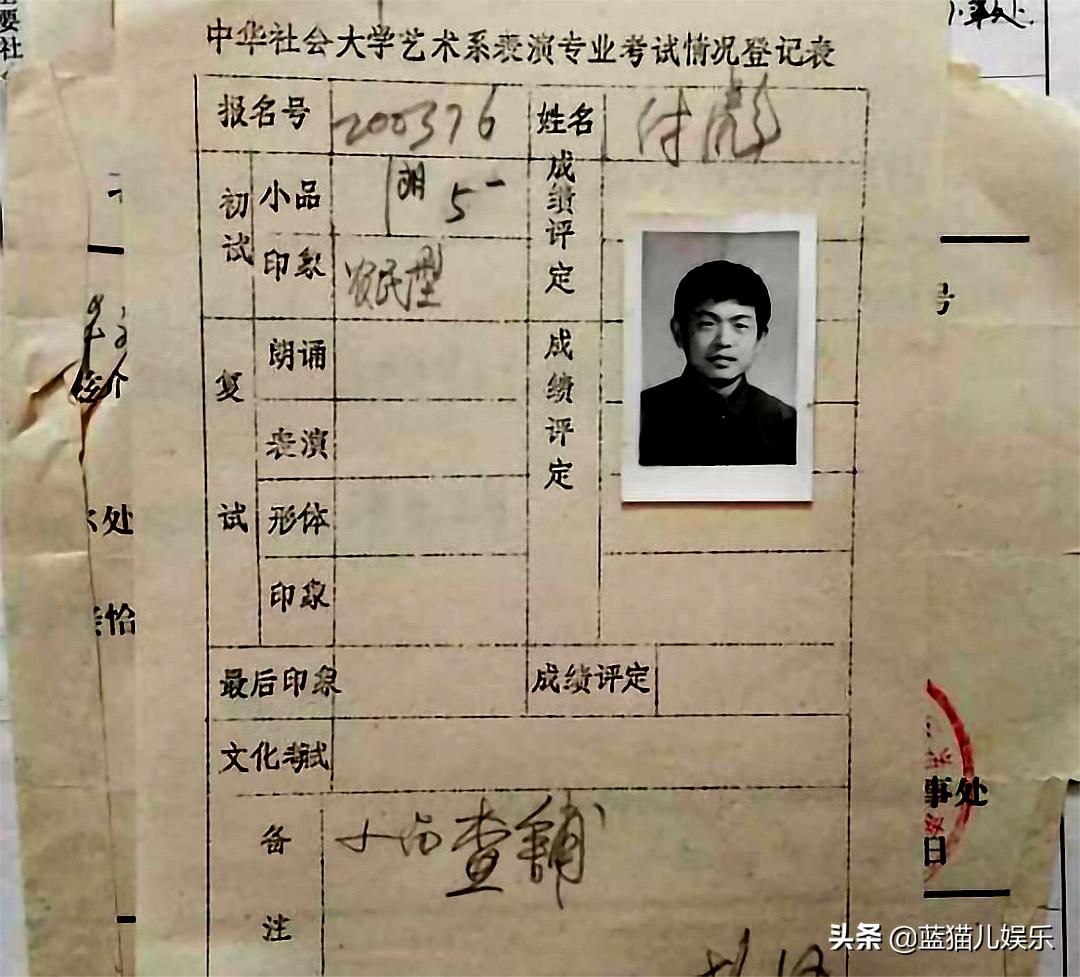 中华社会大学艺术系表演专业考试情况登记表
报名号 200376 姓名 付彪
初试 小品 朗 5-
成绩评定
印象 农民型
复试 朗诵
成绩评定
表演
形体
印象
最后印象 成绩评定
文化考试
备注 小品查铺
要社
处
恰
号
事处
日
头条 @蓝猫儿娱乐